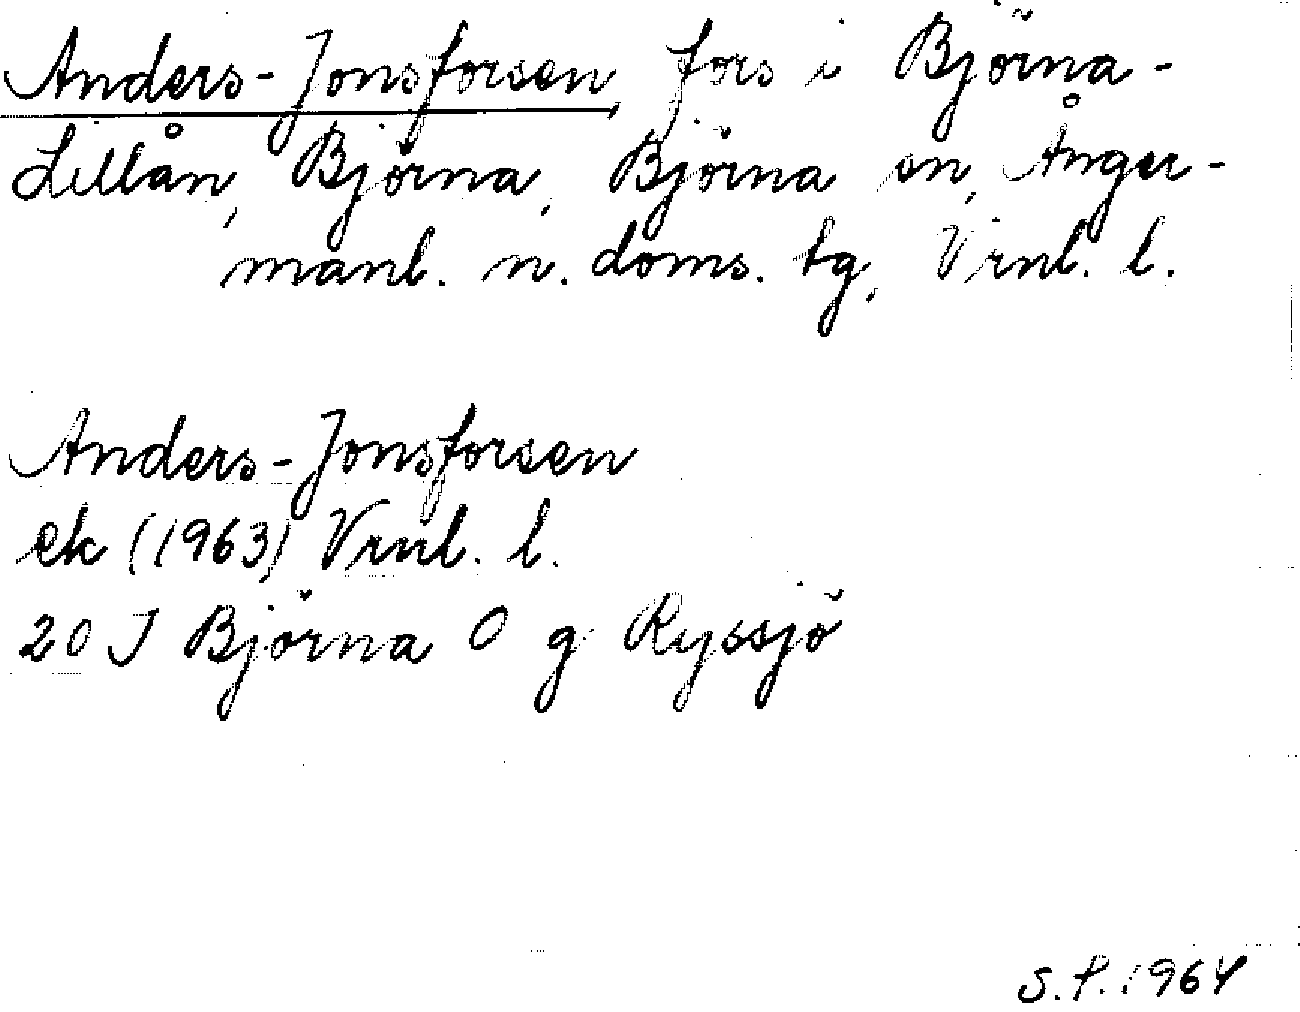 Anders-Jonsforsen, fors i Björna-
Lillån, Björna, Björna sn, Ånger-
manl. n. doms. tg, Vrnl. l.
Anders-Jonsforsen
ek (1963) Vrnl. l.
20 J Björna O g Ryssjö
S.P. 1964